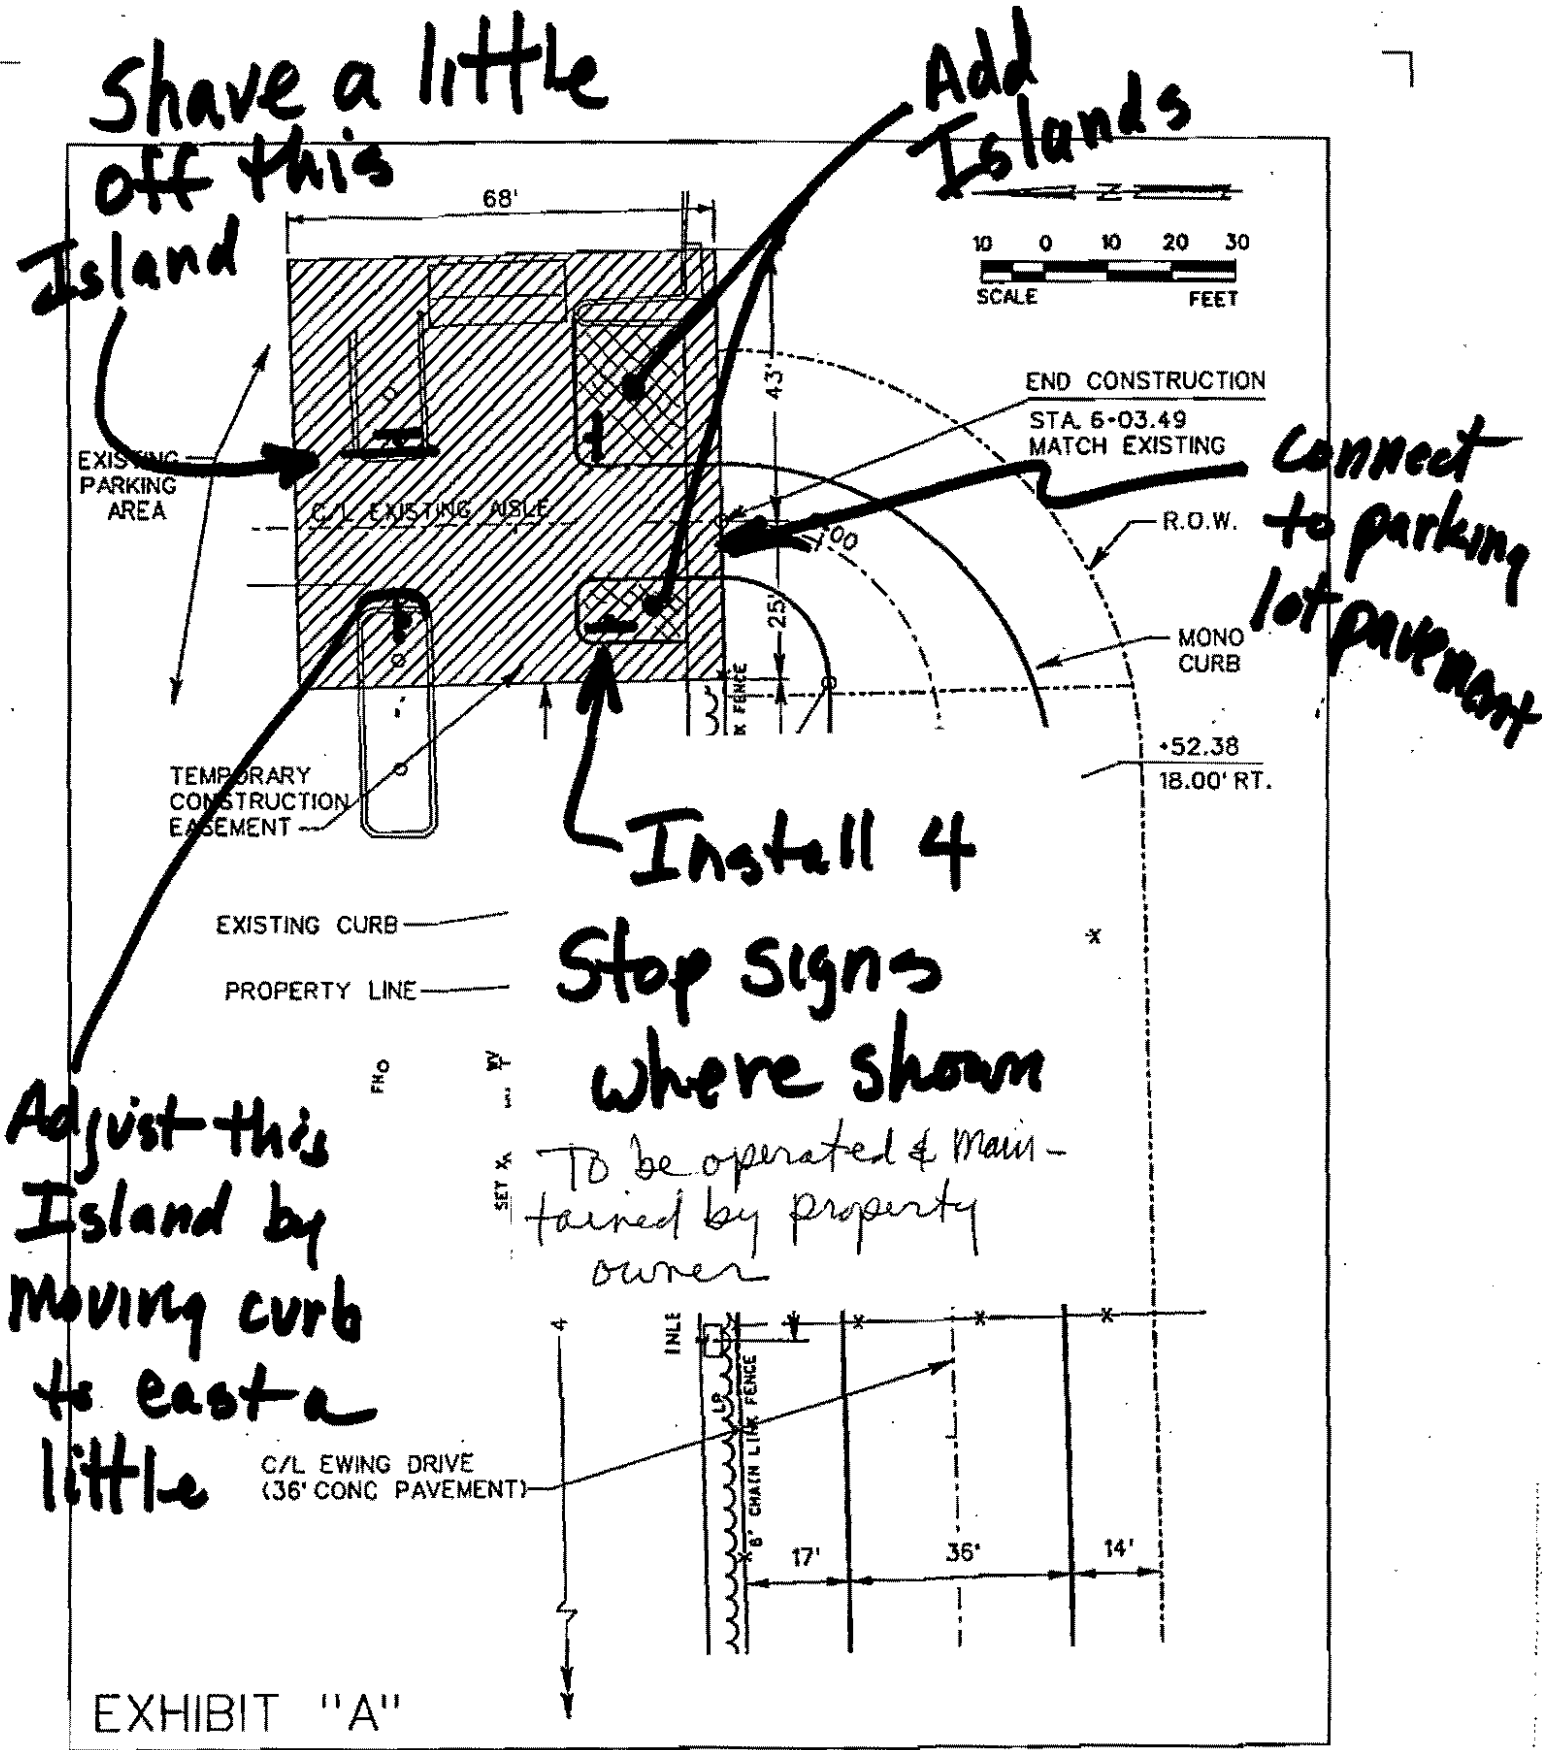 Shave a little
off this
Island
Add
Islands
68'
N
10 0 10 20 30
SCALE FEET
43'
END CONSTRUCTION
STA. 6+03.49
MATCH EXISTING
Connect
to parking
lot pavement
EXISTING
PARKING
AREA
C/L EXISTING AISLE
+00
R.O.W.
25'
MONO
CURB
FENCE
+52.38
18.00' RT.
TEMPORARY
CONSTRUCTION
EASEMENT
Install 4
Stop signs
where shown
EXISTING CURB
PROPERTY LINE
X
FH
WV
Adjust this
Island by
Moving curb
to east a
little
SET X
To be operated & Main-
tained by property
owner
4
INLE
X X X
LP
6' CHAIN LINK FENCE
C/L EWING DRIVE
(36' CONC PAVEMENT)
17' 36' 14'
EXHIBIT "A"